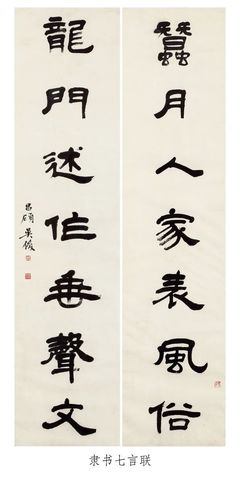 蠶月人家表風俗
龍門述作垂聲文
昌碩吳俊
隶书七言联